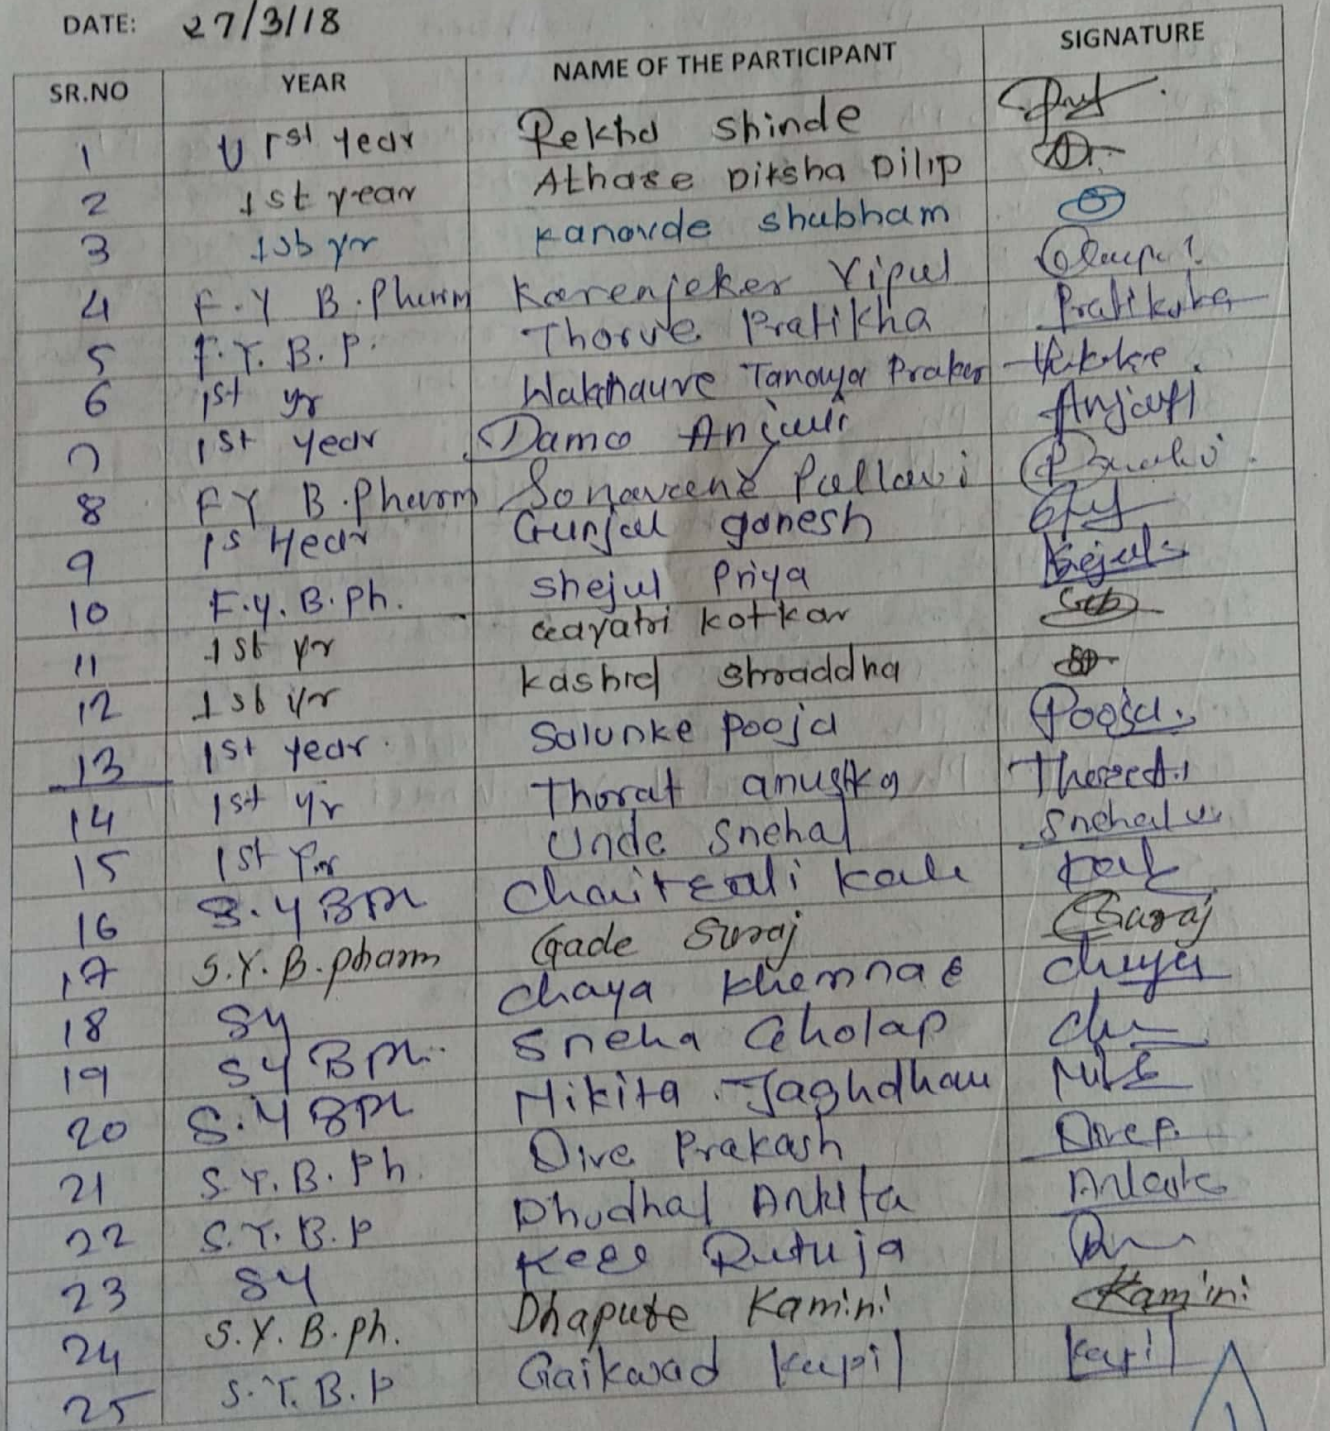 DATE: 27/3/18
SR.NO YEAR NAME OF THE PARTICIPANT SIGNATURE
1 1st year Rekha Shinde
2 1st year Athare Diksha Dilip
3 1st yr Kanavde Shubham
4 F.Y B.Pharm Karenjeker Vipul
5 F.Y.B.P. Thorve Pratikha Pratiksha
6 1st yr Wakhaure Tanauja
7 1st year Damco Anjauli Anjauli
8 FY B.Pharm Sonavene Pallavi
9 1s year Gunjal ganesh
10 F.y.B.Ph. Shejul Priya Sejul
11 1st yr Gayatri kotkar
12 1st yr Kashid Shraddha
13 1st year Salunke pooja Pooja.
14 1st yr Thorat anuska
15 1st Yr Unde Snehal Snehal u
16 S.Y BPh Chaiteali kale kale
17 S.Y.B.pharm Gade Suraj Suraj
18 SY Chaya khemnae Chaya
19 SY BPh. Sneha Gholap
20 S.Y BPh Nikita Jaghdhau
21 S.Y.B.Ph. Dive Prakash Dive P.
22 S.Y.B.P Dhudhal Ankita Ankita
23 SY Rutuja
24 S.Y.B.ph. Dhapute Kamini Kamini
25 S.Y.B.P Gaikawad Kapil Kapil
1